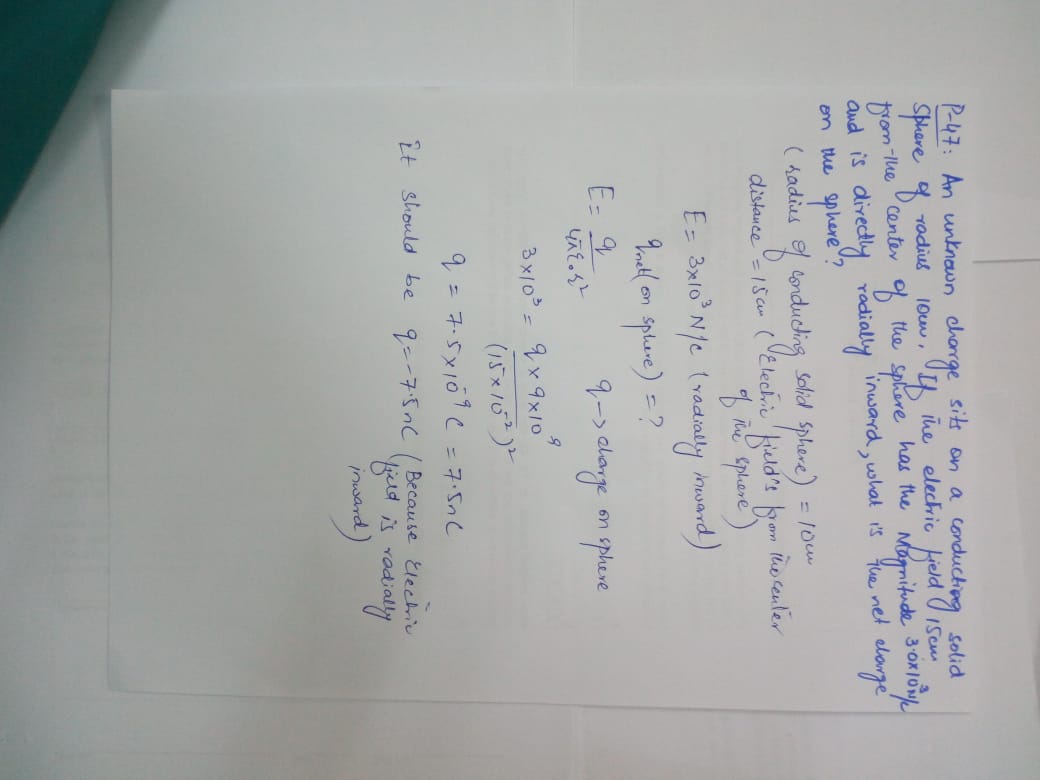 P-47: An unknown charge sits on a conducting solid
Sphere of radius 10cm. If the electric field 15cm
from the center of the sphere has the Magnitude 3.0x10³N/c
and is directly radially inward, what is the net charge
on the sphere?
(radius of conducting solid sphere) = 10cm
distance = 15cm (Electric field's from the center
of the sphere)
E = 3x10³ N/c (radially inward)
qnet(on sphere) = ?
E = q/4πε₀r² q → charge on sphere
3x10³ = q x 9x10⁹/(15x10⁻²)²
q = 7.5x10⁻⁹ C = 7.5nC
It should be q=-7.5nC (Because Electric
field is radially
inward)